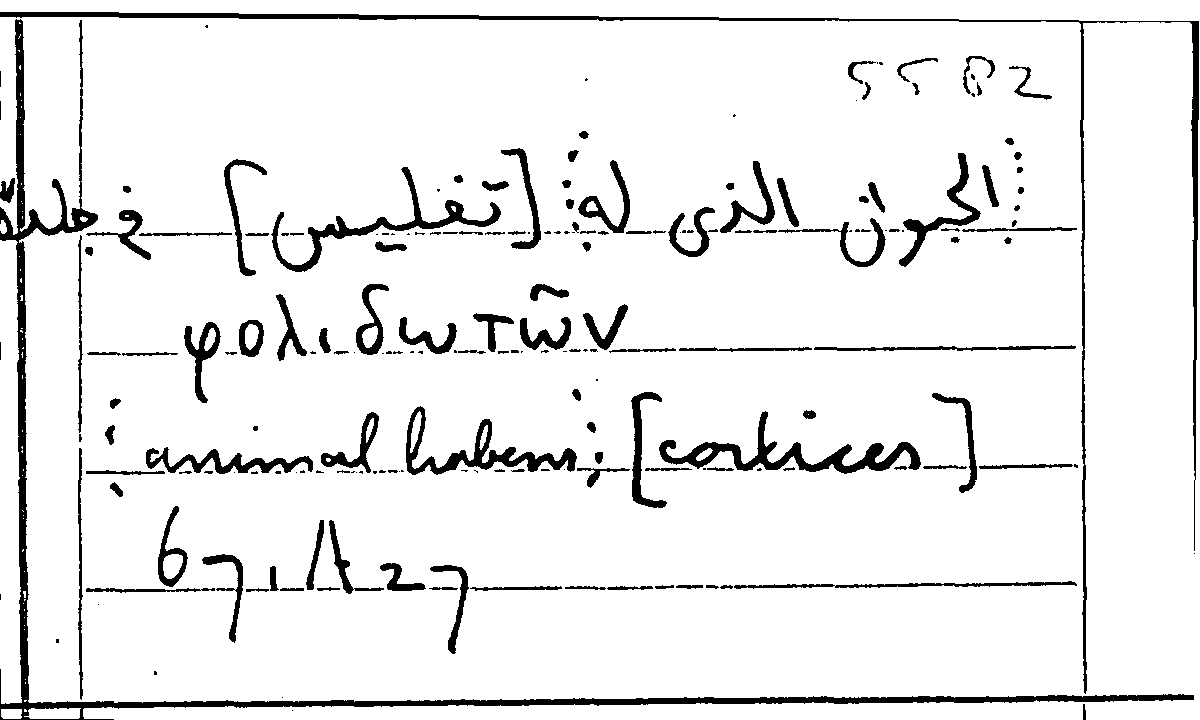 5582
⁞الحيوان الذى له⁞ [تفليس] فى جلده
φολιδωτῶν
⁞animal habens⁞ [cortices]
67,1 A 27